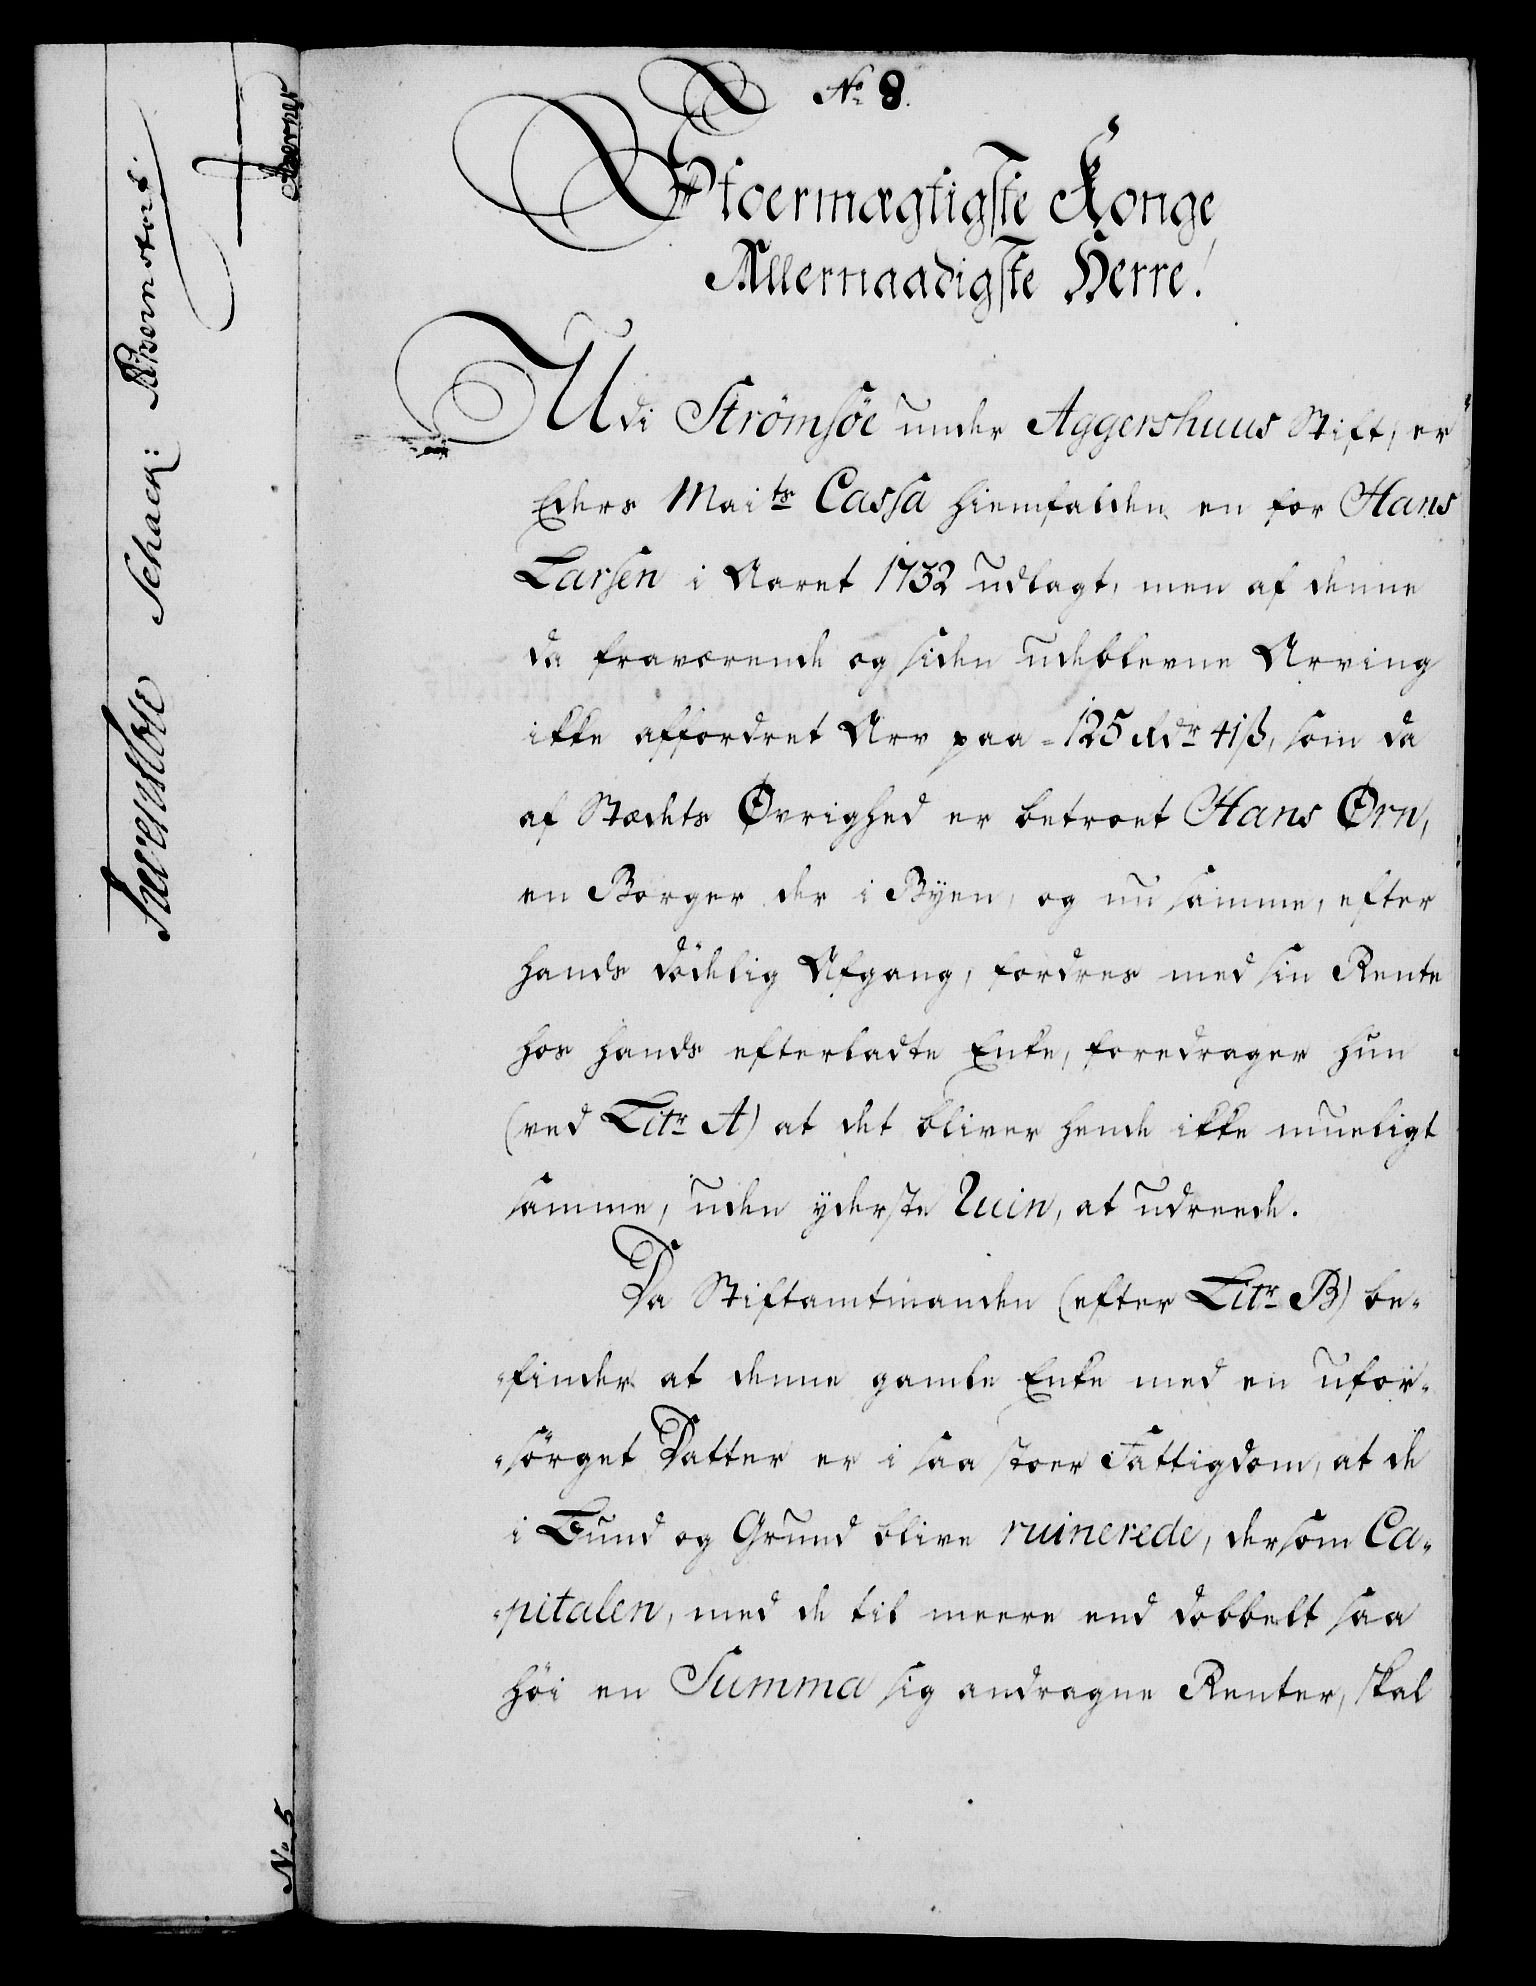 No 8.
Stoermægtigste Konge,
Allernaadigste Herre!
Udi Strömsöe under Aggershuus Stift, er
Eders Maits Cassa hiemfalden en for Hans
Larsen i Aaret 1732 udlagt, men af denne
da fraværende og siden udeblevne Arving
ikke affordret Arv paa 125 Rdr 41ß, som da
af Stædets Øvrighed er betroet Hans Ørn,
en Borger der i Byen, og nu samme, efter
hands dödelig Afgang, fordres med sin Rente
hos hands efterladte Enke, foredrager hun
(ved Litr A) at det bliver hende ikke mueligt
samme, uden yderste Ruin, at udreede.
Da Stiftamtmanden (efter Litr B) be-
-finder at denne gamle Enke med en ufor-
-sörget Datter er i saa stoer Fattigdom, at de
i Bund og Grund blive ruinerede, dersom Ca-
-pitalen, med de til meere end dobbelt saa
höi en Summa sig andragne Renter, skal
Schack:
No 5